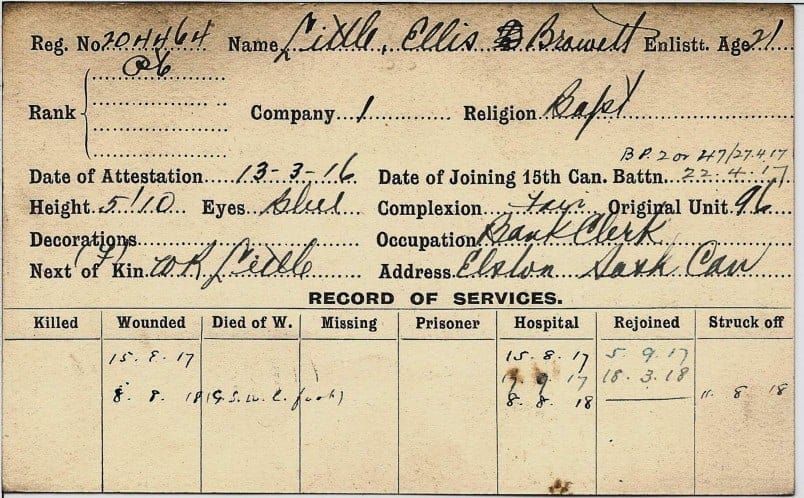 Reg. No. 204464 Name Little, Ellis Browett Enlistt. Age 21
Pte
Rank Company 1 Religion Bapt
B.P. 2 or 47/27.4.17
Date of Attestation 13-3-16 Date of Joining 15th Can. Battn. 22.4.17
Height 5'10 Eyes Blue Complexion Fair Original Unit 96
Decorations Occupation Bank Clerk
Next of Kin (F) W R Little Address Elston Sask Can
RECORD OF SERVICES.
Killed Wounded Died of W. Missing Prisoner Hospital Rejoined Struck off
15.8.17 15.8.17 5.9.17
17.9.17 18.3.18
8.8.18 (G.S.W. L. foot) 8.8.18 11 8 18